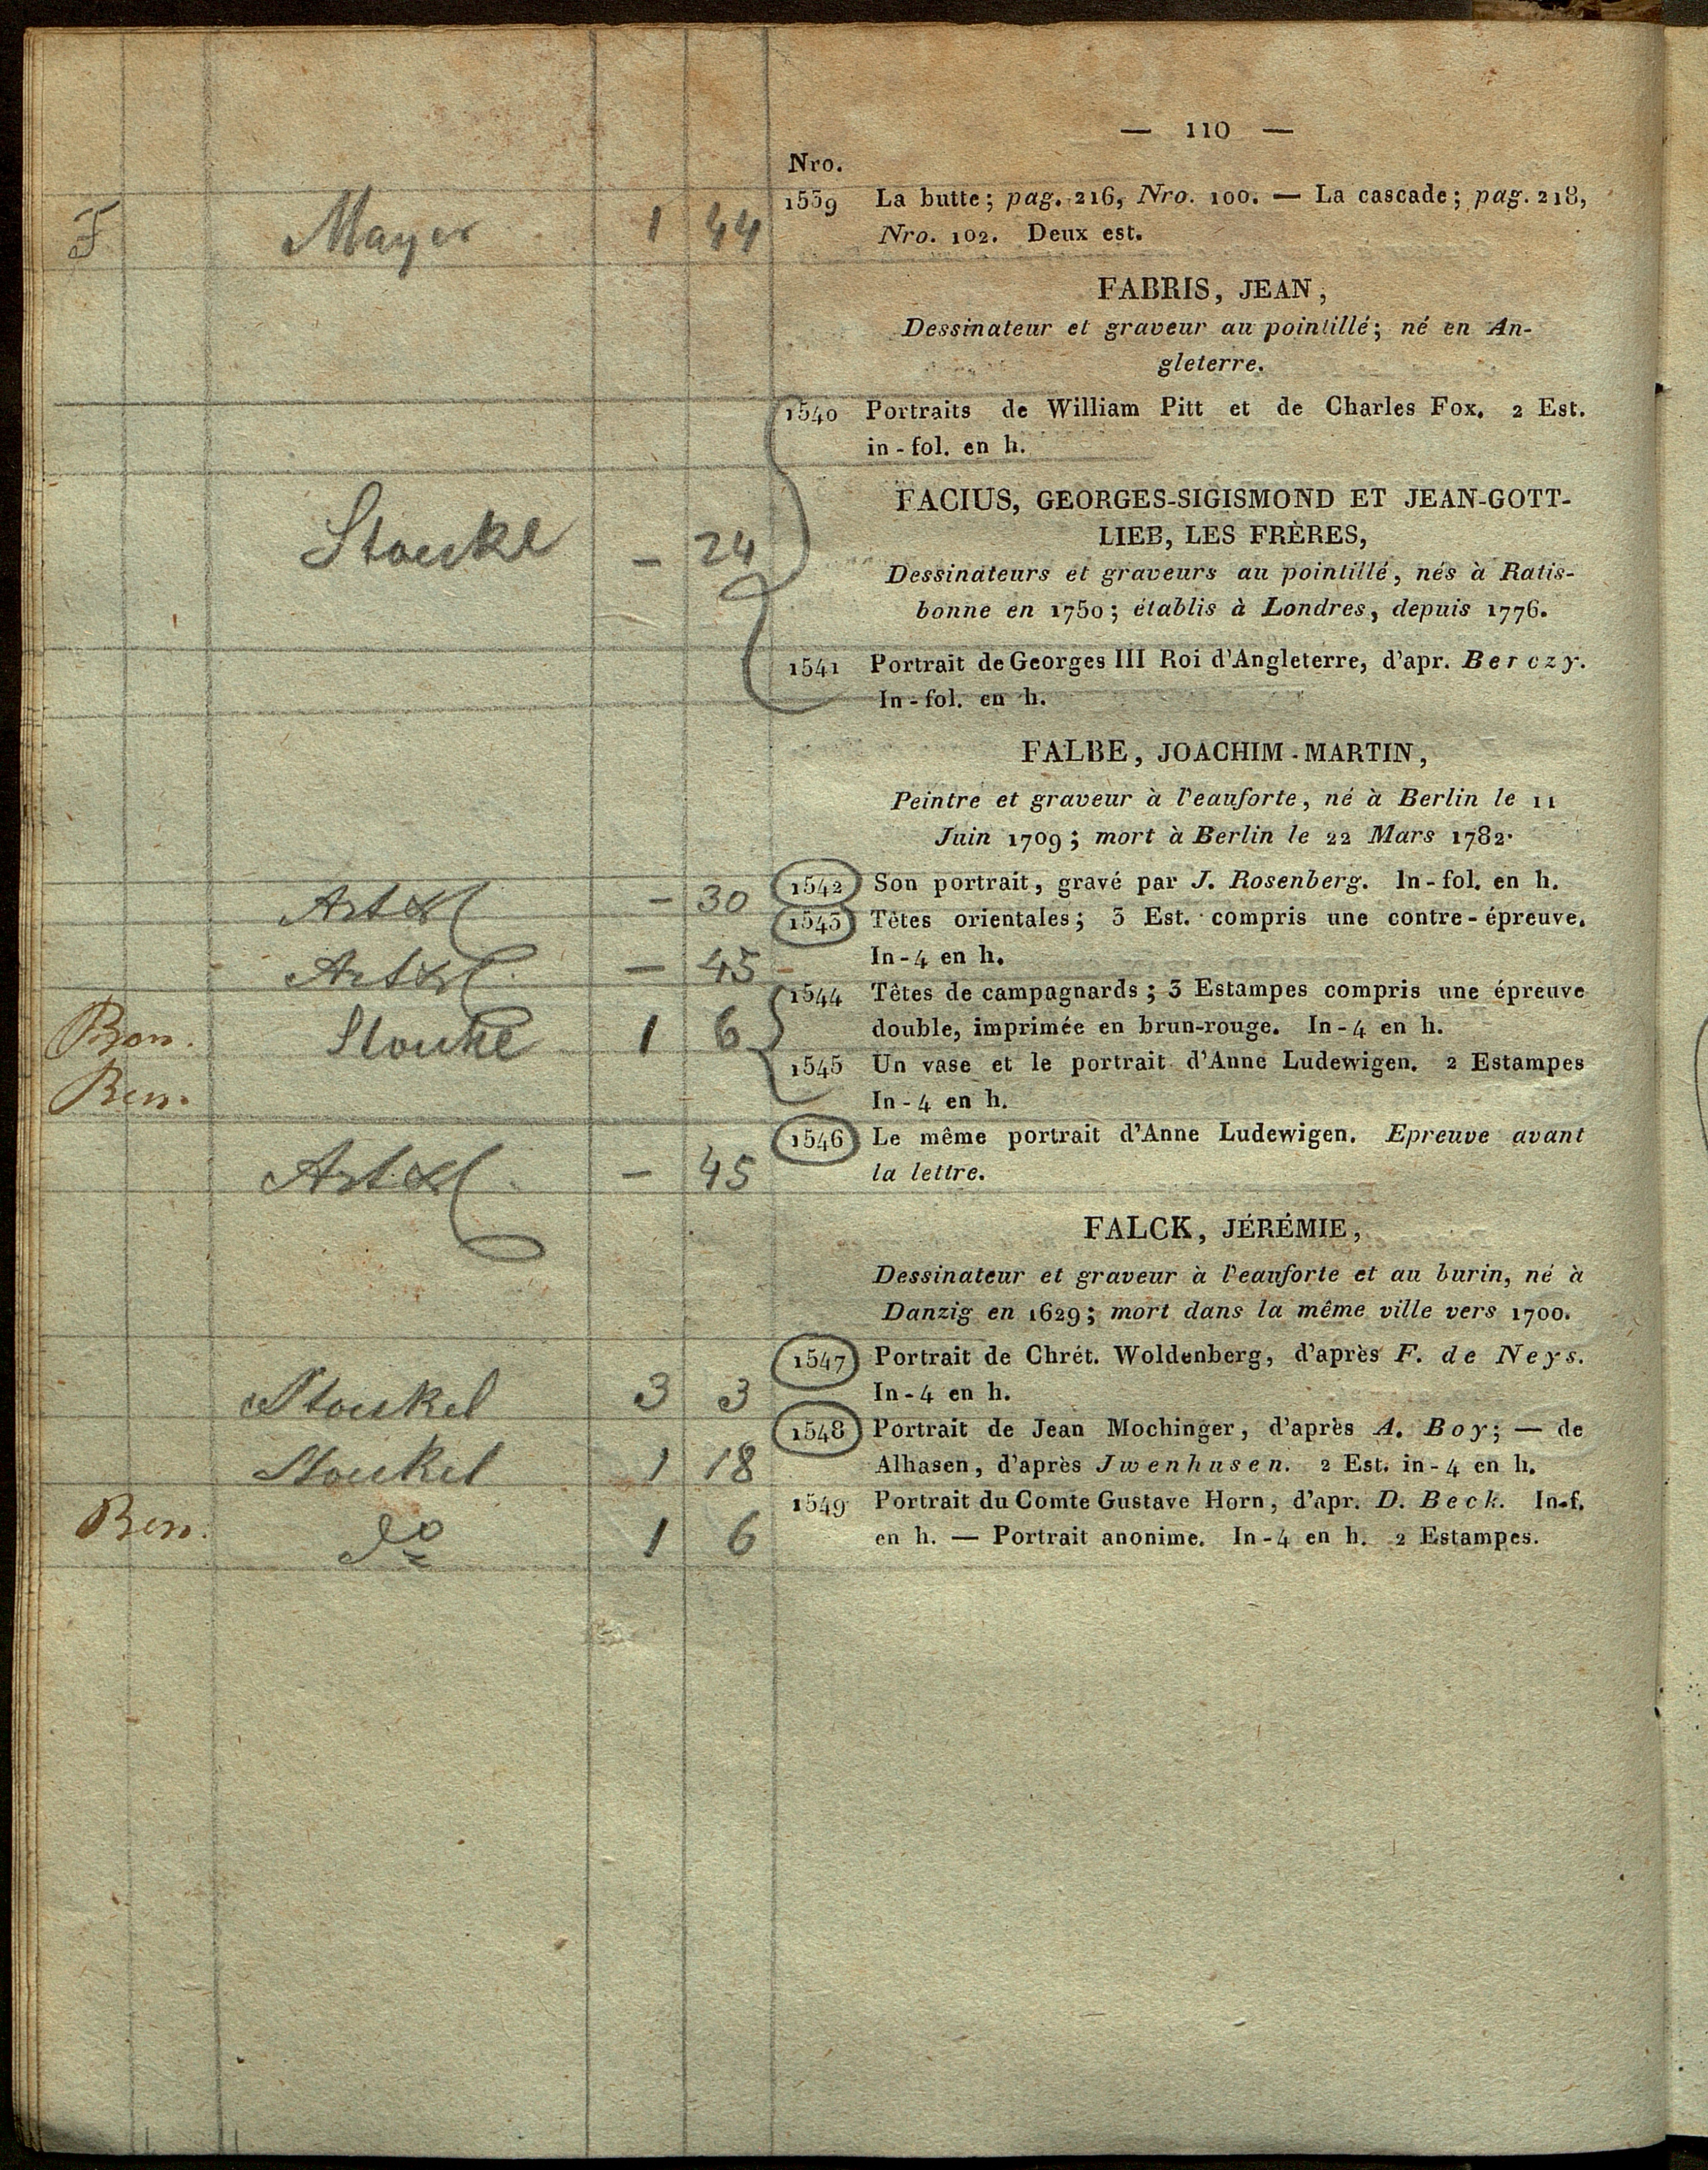 — 110 —
Nro.
F Mayer 1 44
1539 La butte; pag. 216, Nro. 100. — La cascade; pag. 218,
Nro. 102. Deux est.
FABRIS, JEAN,
Dessinateur et graveur au pointillé; né en An-
gleterre.
1540 Portraits de William Pitt et de Charles Fox. 2 Est.
in-fol. en h.
FACIUS, GEORGES-SIGISMOND ET JEAN-GOTT-
LIEB, LES FRÈRES,
Stoukl — 24
Dessinateurs et graveurs au pointillé, nés à Ratis-
bonne en 1750; établis à Londres, depuis 1776.
1541 Portrait de Georges III Roi d'Angleterre, d'apr. Berczy.
In-fol. en h.
FALBE, JOACHIM-MARTIN,
Peintre et graveur à l'eauforte, né à Berlin le 11
Juin 1709; mort à Berlin le 22 Mars 1782.
Art — 30
1542 Son portrait, gravé par J. Rosenberg. In-fol. en h.
Art — 45
1543 Têtes orientales; 3 Est. compris une contre-épreuve.
In-4 en h.
Ben. Stoukl 1 6
1544 Têtes de campagnards; 3 Estampes compris une épreuve
double, imprimée en brun-rouge. In-4 en h.
Ben.
1545 Un vase et le portrait d'Anne Ludewigen. 2 Estampes
In-4 en h.
Art — 45
1546 Le même portrait d'Anne Ludewigen. Epreuve avant
la lettre.
FALCK, JÉRÉMIE,
Dessinateur et graveur à l'eauforte et au burin, né à
Danzig en 1629; mort dans la même ville vers 1700.
Stoukel 3 3
1547 Portrait de Chrét. Woldenberg, d'après F. de Neys.
In-4 en h.
Stoukel 1 18
1548 Portrait de Jean Mochinger, d'après A. Boy; — de
Alhasen, d'après Jwenhusen. 2 Est. in-4 en h.
Ben. do 1 6
1549 Portrait du Comte Gustave Horn, d'apr. D. Beck. In-f.
en h. — Portrait anonime. In-4 en h. 2 Estampes.